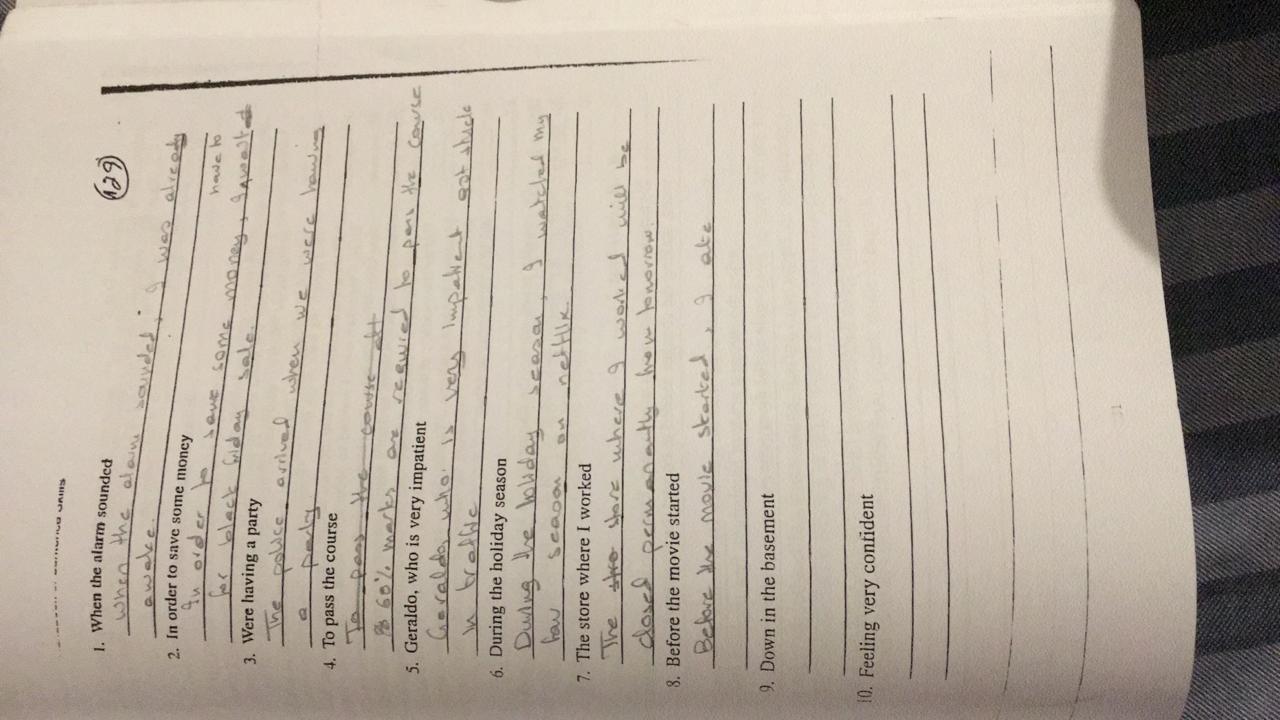 Skills
129
1. When the alarm sounded
When the alarm sounded, I was already
awake.
2. In order to save some money
have to
In order to save some money, I wait
for black friday sale.
3. Were having a party
The police arrived when we were having
a party
4. To pass the course
To pass the course
60% marks are required to pass the course
5. Geraldo, who is very impatient
Geraldo who is very impatient got stuck
in traffic
6. During the holiday season
During the holiday season, I watched my
fav season on netflix.
7. The store where I worked
The store where I worked will be
closed permanantly from tomorrow.
8. Before the movie started
Before the movie started, I ate
9. Down in the basement
10. Feeling very confident